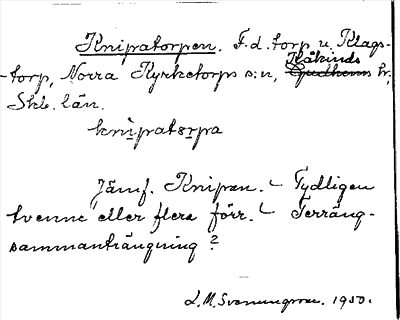 Knipatorpen. F.d. torp u. Klags-
torp, Norra Kyrketorps s:n, Kåkinds hr,
Skb. län.
knìpatɵrpa
Jämf. Knipan. – Tydligen
tvenne eller flera förr. – Terräng-
sammanträngning?
L.M. Svenungsson. 1930.